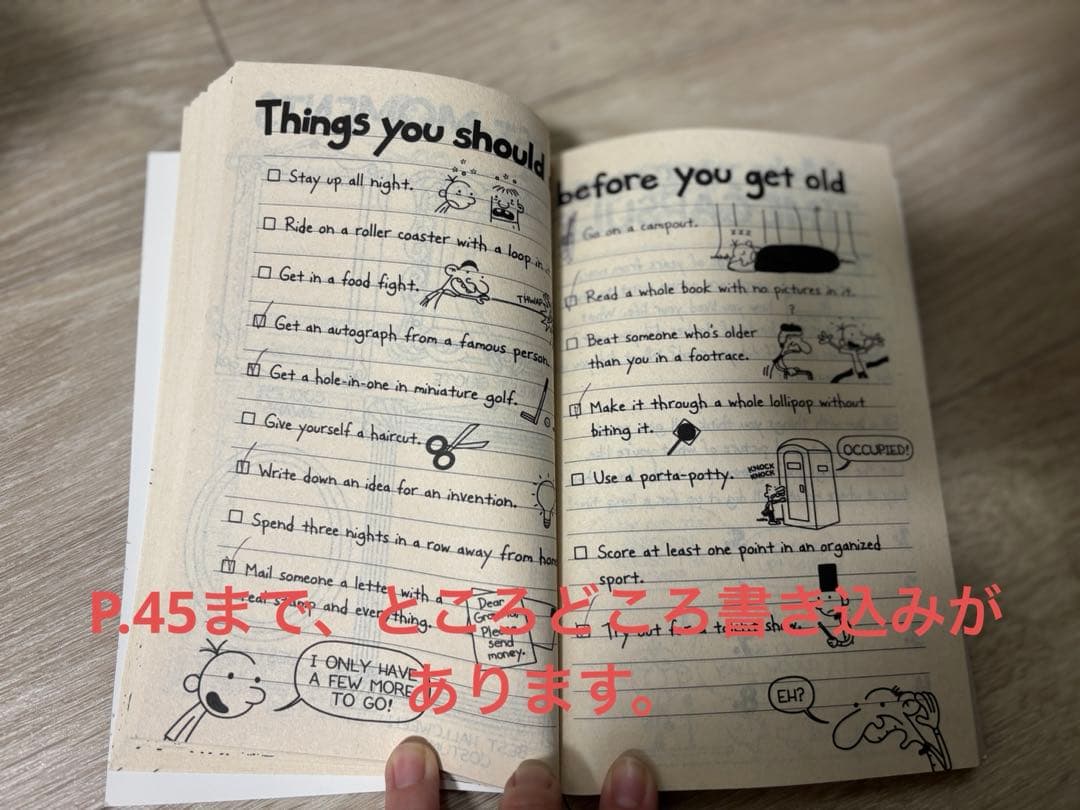 Things you should
Stay up all night.
Ride on a roller coaster with a loop in
Get in a food fight.
THWAP
Get an autograph from a famous person.
Get a hole-in-one in miniature golf.
Give yourself a haircut.
Write down an idea for an invention.
Spend three nights in a row away from
Mail someone a letter with a
real stamp and everything.
Dear
Please
send
money.
I ONLY HAVE
A FEW MORE
TO GO!
before you get old
Go on a campout.
zzz
Read a whole book with no pictures in it.
?
Beat someone who's older
than you in a footrace.
Make it through a whole lollipop without
biting it.
Use a porta-potty.
KNOCK
KNOCK
OCCUPIED!
Score at least one point in an organized
sport.
Try out for a talent show.
EH?
P.45まで、ところどころ書き込みが
あります。